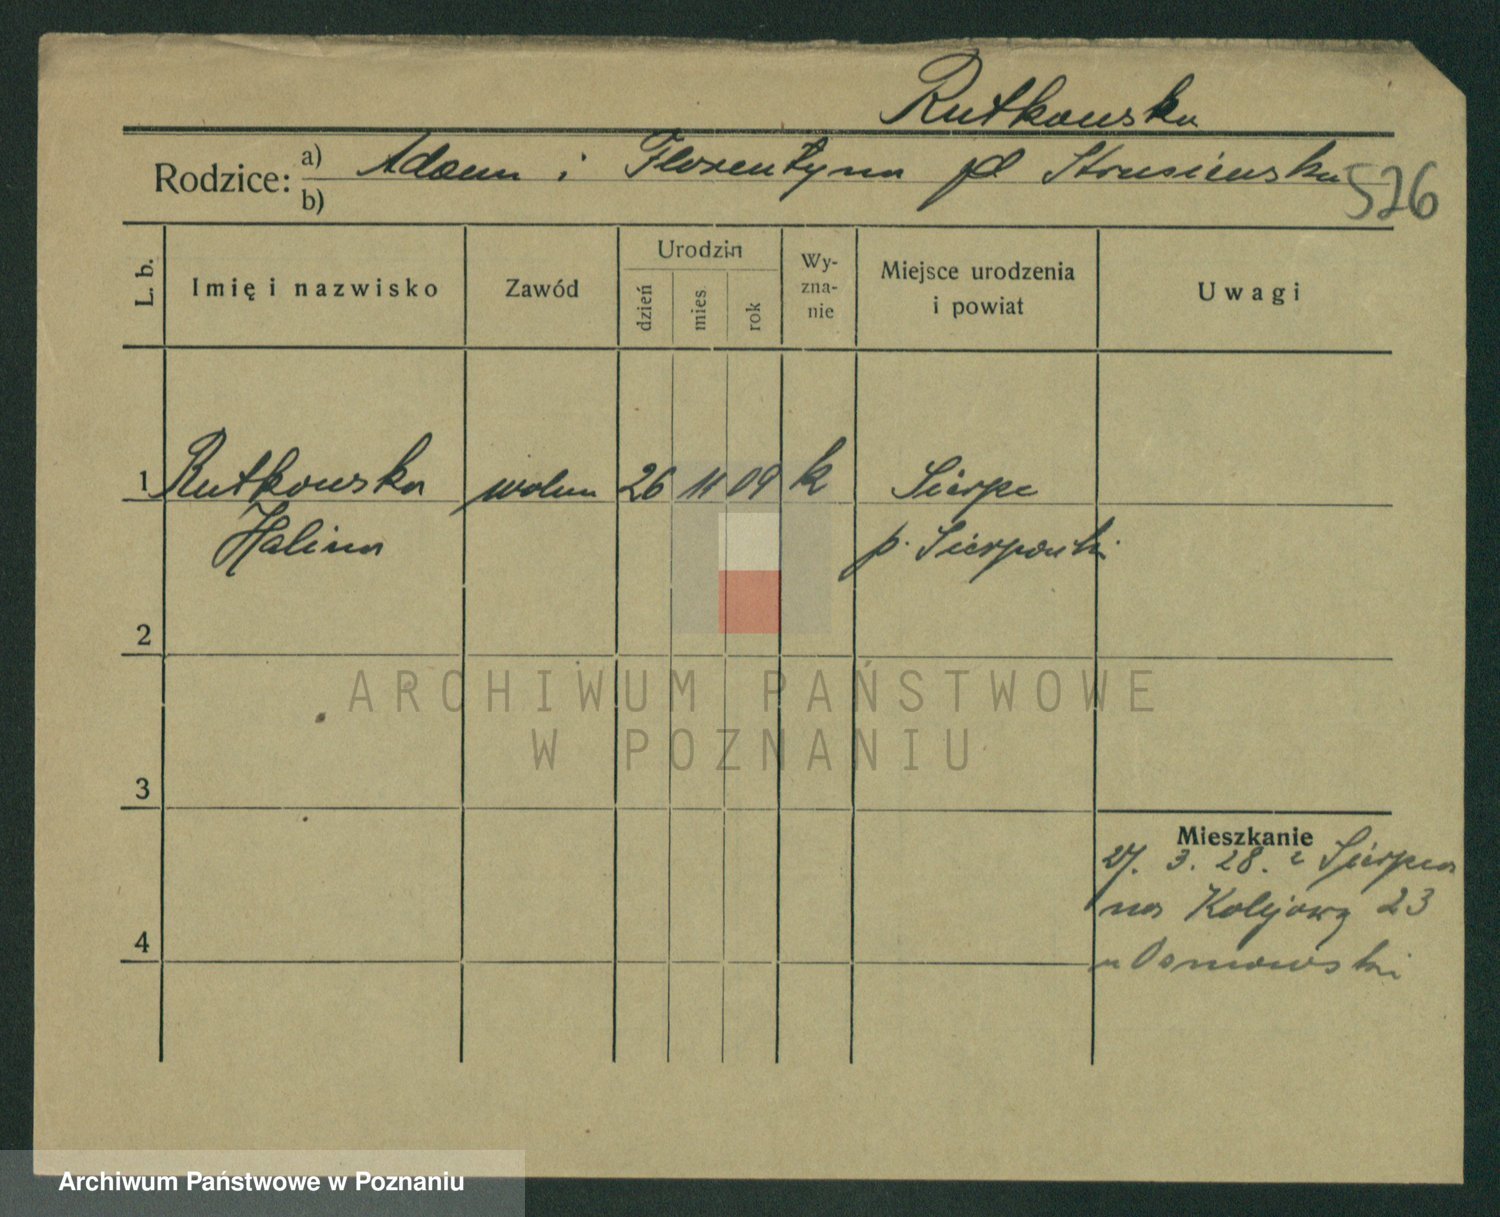 Rutkowska
Rodzice: a) Adam i Florentyna
b)
526
L. b.
Imię i nazwisko
Zawód
Urodzin
dzień
mies
rok
Wy-
zna-
nie
Miejsce urodzenia
i powiat
Uwagi
1 Rutkowska wolna 26 11 09 k Sierpc
Halina p. Sierpecki
2
3
4
Mieszkanie
27. 3. 28. z Sierpca
na Kolejową 23
u
ARCHIWUM PAŃSTWOWE
W POZNANIU
Archiwum Państwowe w Poznaniu